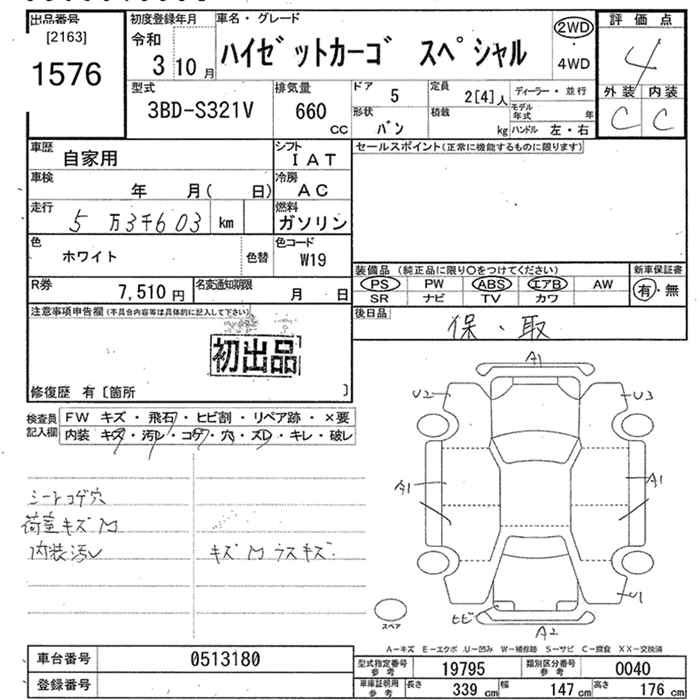 出品番号
[2163]
1576
初度登録年月
令和
3 10 月
車名・グレード
ハイゼットカーゴ スペシャル
2WD
・
4WD
評価点
4
外装 内装
C C
型式
3BD-S321V
排気量
660
CC
ドア
5
形状
バン
定員
2[4]人
積載
kg
ディーラー・並行
モデル年式 年
ハンドル 左・右
車歴
自家用
シフト
IAT
セールスポイント(正常に機能するものに限ります)
車検
年 月( 日)
冷房
AC
走行
5万3千603 km
燃料
ガソリン
色
ホワイト
色替
色コード
W19
R券
7,510 円
名変通知期限
月 日
装備品 (純正品に限り○をつけてください)
PS PW ABS エアB AW
SR ナビ TV カワ
新車保証書
有・無
注意事項申告欄(不具合内容等は具体的に記入して下さい)
初出品
修復歴 有〔箇所 〕
後日品
保・取
検査員記入欄
FW キズ・飛石・ヒビ割・リペア跡・×要
内装 キズ・汚レ・コゲ・穴・ズレ・キレ・破レ
シートコゲ穴
荷室キズM
内装汚レ
キズM ラスキズ
A1
U2
U3
A1
A1
U1
ヒビ
A2
スペア
A-キズ E-エクボ U-凹み W-補修跡 S-サビ C-腐食 XX-交換済
車台番号
0513180
登録番号
型式指定番号
参考
19795
類別区分番号
参考
0040
車庫証明用
参考
長さ
339 cm
幅
147 cm
高さ
176 cm